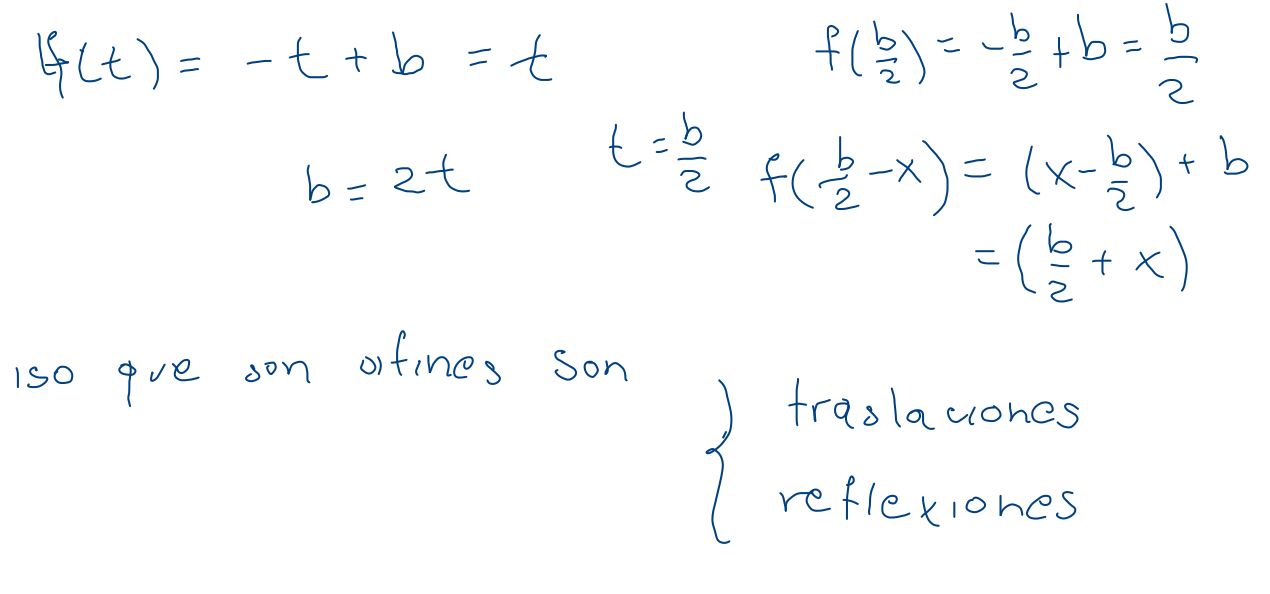 f(t) = -t + b = t
b = 2t
t = b/2
f(b/2) = -b/2 + b = b/2
f(b/2 - x) = (x - b/2) + b
= (b/2 + x)
iso que son afines son
traslaciones
reflexiones